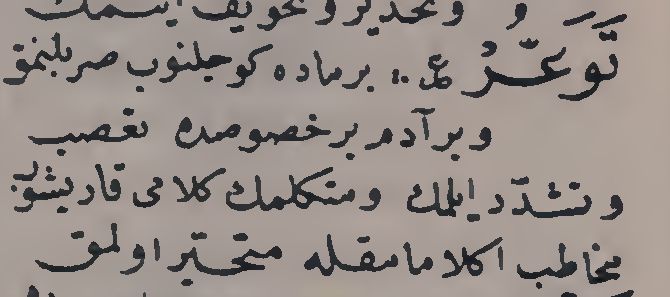 و تحذير و تخويف ايتمك
تَوَعُّرُ ع ن بر ماده كوجلنوب صربلنمق
و بر آدم بر خصوصده تعصب
و تشدّد ايلمك و متكلمك كلامى قاريشوب
مخاطب اكلامامقله متحيّر اولمق